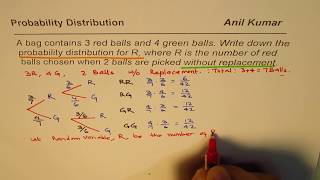 Probability Distribution Anil Kumar
A bag contains 3 red balls and 4 green balls. Write down the
probability distribution for R, where R is the number of red
balls chosen when 2 balls are picked without replacement.
3R, 4G, 2 Balls w/o Replacement. Total: 3+4=7 Balls.
R RR 3/7 2/6 = 6/42
R G RG 3/7 4/6 = 12/42
G R GR 4/7 3/6 = 12/42
3/6 G GG 4/7 3/6 = 12/42
Let Random Variable, R, be the number of